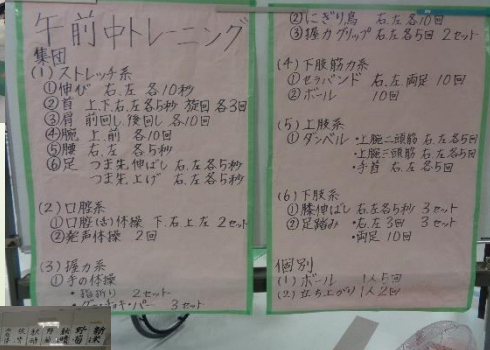 午前中トレーニング
集団
(1) ストレッチ系
①伸び 右、左 各10秒
②首 上下、右、左各5秒 旋回 各3回
③肩 前回し、後回し 各10回
④腕 上、前 各10回
⑤腰 右、左 各5秒
⑥足 つま先、伸ばし 右、左 各5秒
つま先、上げ 右、左 各5秒
(2) 口腔系
①口腔(お)体操 下、右、上、左 2セット
②発声体操 2回
(3) 握力系
①手の体操
・指折り 2セット
・グー・チョキ・パー 3セット
②にぎり鳥 右、左 各10回
③握力グリップ 右、左 各5回 2セット
(4) 下肢筋力系
①セラバンド 右、左、両足 10回
②ボール 10回
(5) 上肢系
①ダンベル ・上腕二頭筋 右、左 各5回
・上腕三頭筋 右、左 各5回
・手首 右、左 各5回
(6) 下肢系
①膝伸ばし 右、左 各5秒 3セット
②足踏み ・右、左 3回 3セット
・両足 10回
個別
(1) ボール 1人5回
(2) 立ち上がり 1人2回